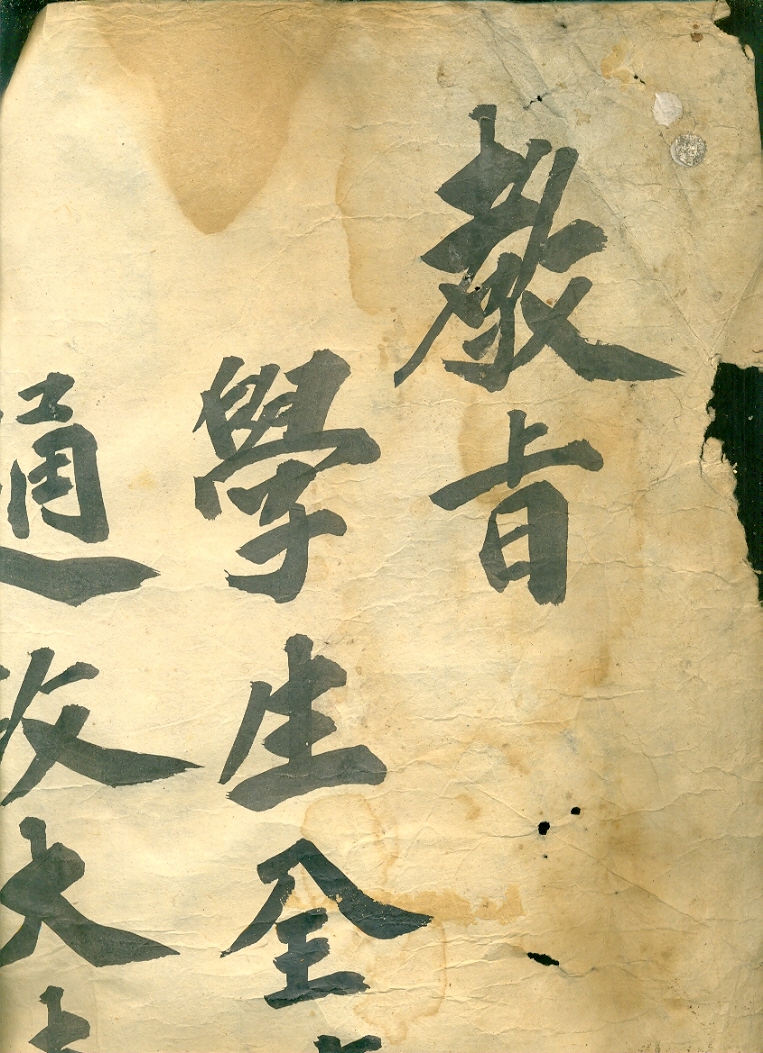 教旨
學生全
通政大